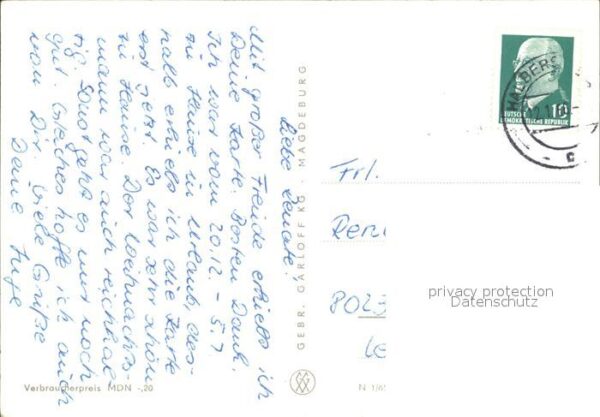 Liebe Renate!
Mit großer Freude erhielt ich
Deine Karte. Besten Dank.
Ich war vom 20.12. - 5.1
zu Hause in Urlaub, des-
halb erhielt ich die Karte
erst jetzt. Es war sehr schön
zu Hause. Der Weihnachts-
mann war auch reichhal-
tig. Sonst geht es mir noch
gut. Gleiches hoffe ich auch
von Dir. Viele Grüße
Deine
GEBR. GARLOFF KG · MAGDEBURG
Verbraucherpreis MDN -,20
N 1/65
DEUTSCHE
DEMOKRATISCHE REPUBLIK
10
HALBERS
Frl.
Ren
8025
Le
privacy protection
Datenschutz